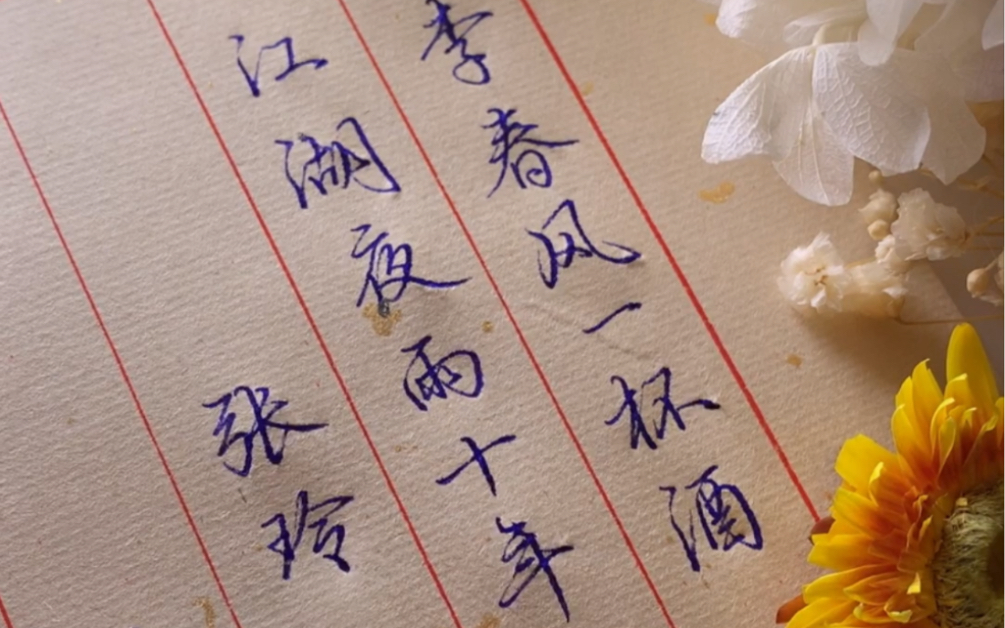 李春风一杯酒
江湖夜雨十年
张玲